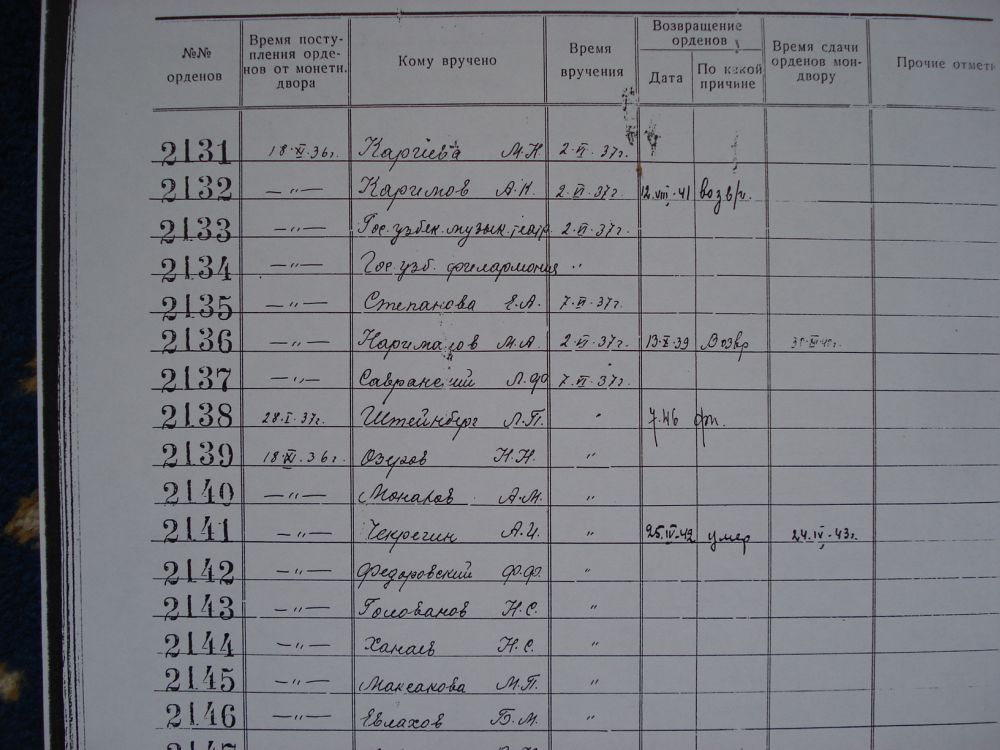 №№ орденов | Время поступления орденов от монетн. двора | Кому вручено | Время вручения | Возвращение орденов: Дата | По какой причине | Время сдачи орденов мон-двору | Прочие отметк
2131 18.XI.36г. Каргиева М.Н. 2.VI.37г.
2132 —"— Каримов А.К. 2.VI.37г. 12.VIII.41 возвр.
2133 —"— Гос.узбек.музык.театр 2.VI.37г.
2134 —"— Гос.узб. филармония "
2135 —"— Степанова Е.А. 7.VI.37г.
2136 —"— Наримаов М.А. 2.VI.37г. 13.X.39 Возвр
2137 —"— Савранский Л.Ф 7.VI.37г.
2138 28.I.37г. Штейнберг Л.П. " 7.46
2139 18.XI.36г. Озеров Н.Н. "
2140 —"— Монахов А.М. "
2141 —"— Чекрыгин А.И. " 25.IV.42 умер 24.IV.43г.
2142 —"— Федоровский Ф.Ф. "
2143 —"— Голованов Н.С. "
2144 —"— Ханаев Н.С. "
2145 —"— Максакова М.П. "
2146 —"— Евлахов Б.М. "